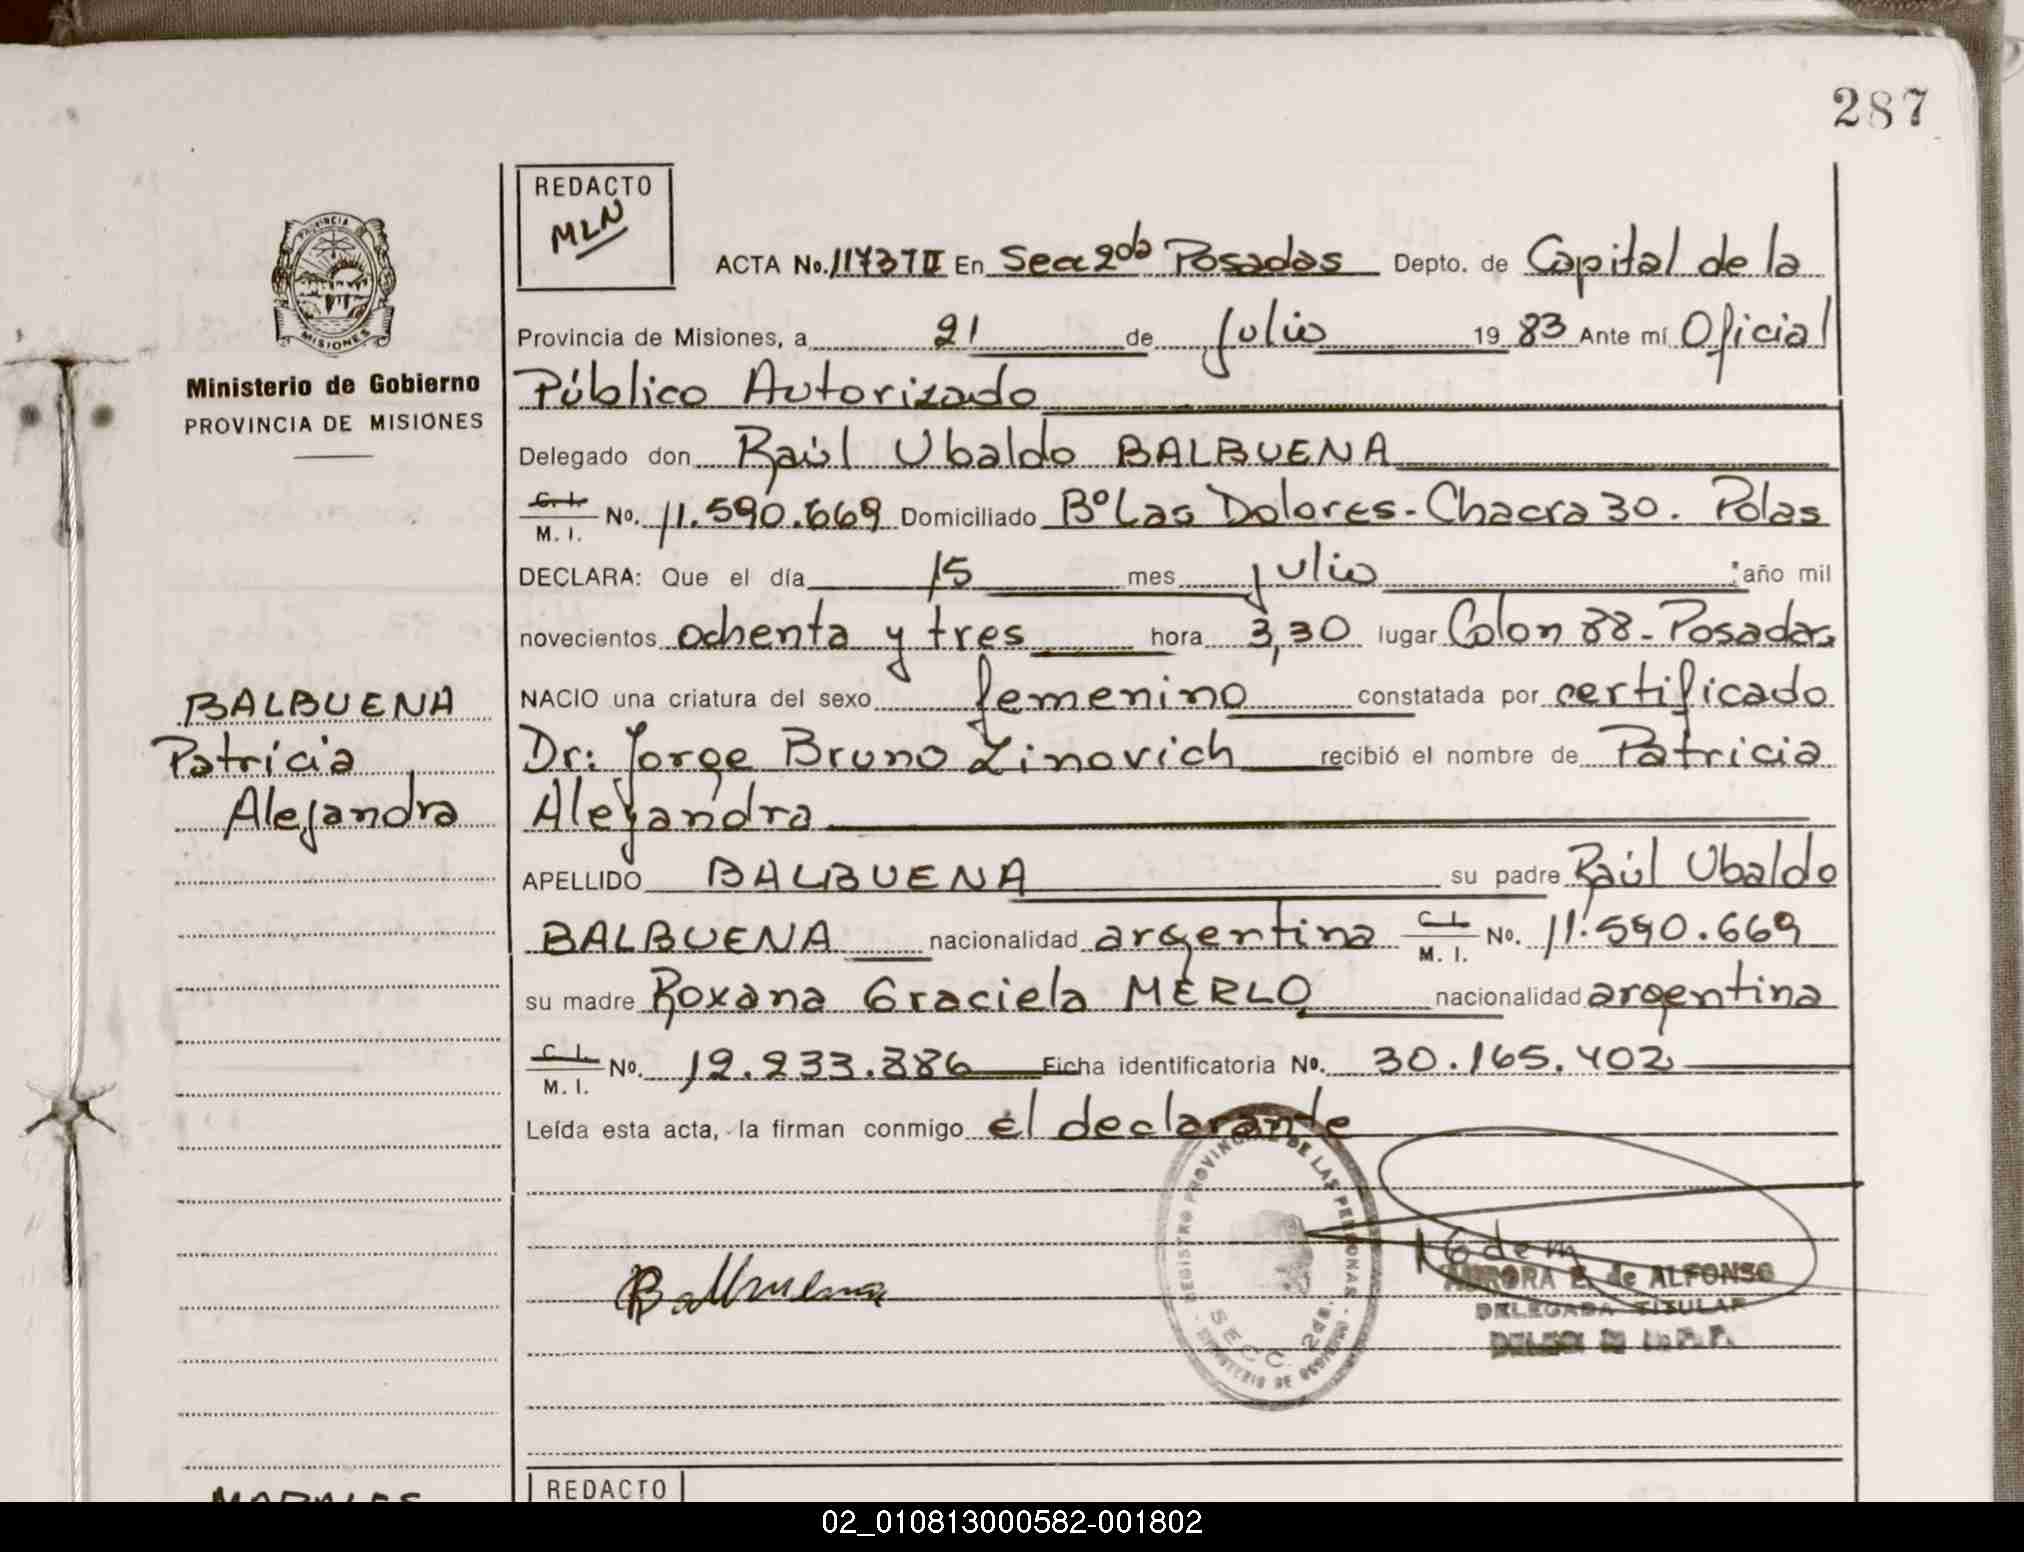 287
REDACTO
MLN
PROVINCIA
MISIONES
ACTA No. 1173TII En Secc 2da Posadas Depto. de Capital de la
Provincia de Misiones, a 21 de julio 1983 Ante mí Oficial
Ministerio de Gobierno
PROVINCIA DE MISIONES
Público Autorizado
Delegado don Raúl Ubaldo BALBUENA
C. I.
M. I. No. 11.590.669 Domiciliado Bº Las Dolores - Chacra 30. Pdas
DECLARA: Que el día 15 mes julio año mil
novecientos ochenta y tres hora 3,30 lugar Colon 88 - Posadas
NACIO una criatura del sexo femenino constatada por certificado
BALBUENA
Patricia
Alejandra
Dr: Jorge Bruno Zinovich recibió el nombre de Patricia
Alejandra
APELLIDO BALBUENA su padre Raúl Ubaldo
BALBUENA nacionalidad argentina C. I. M. I. No. 11.590.669
su madre Roxana Graciela MERLO nacionalidad argentina
C. I.
M. I. No. 12.233.886 Ficha identificatoria No. 30.165.402
Leída esta acta, la firman conmigo el declarante
REGISTRO PROVINCIAL DE LAS PERSONAS
SECC. 2da.
MINISTERIO DE GOBIERNO
Balbuena
AURORA E. de ALFONSO
DELEGADA TITULAR
REDACTO
MORALES
02_010813000582-001802